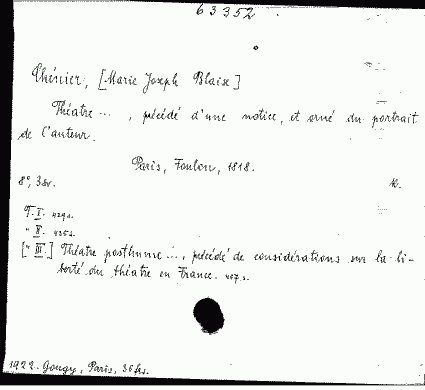 63352
Chénier, [Marie Joseph Blaise]
Théatre ... , précédé d'une notice, et orné du portrait
de l'auteur.
Paris, Foulon, 1818.
8°, 3 Br. k.
T. I. 429 s.
" II. 435 s.
[" III.] Théatre posthume ..., précédé de considérations sur la li-
berté du théatre en France. 467 s.
1922. Gougy, Paris, 36 frs.